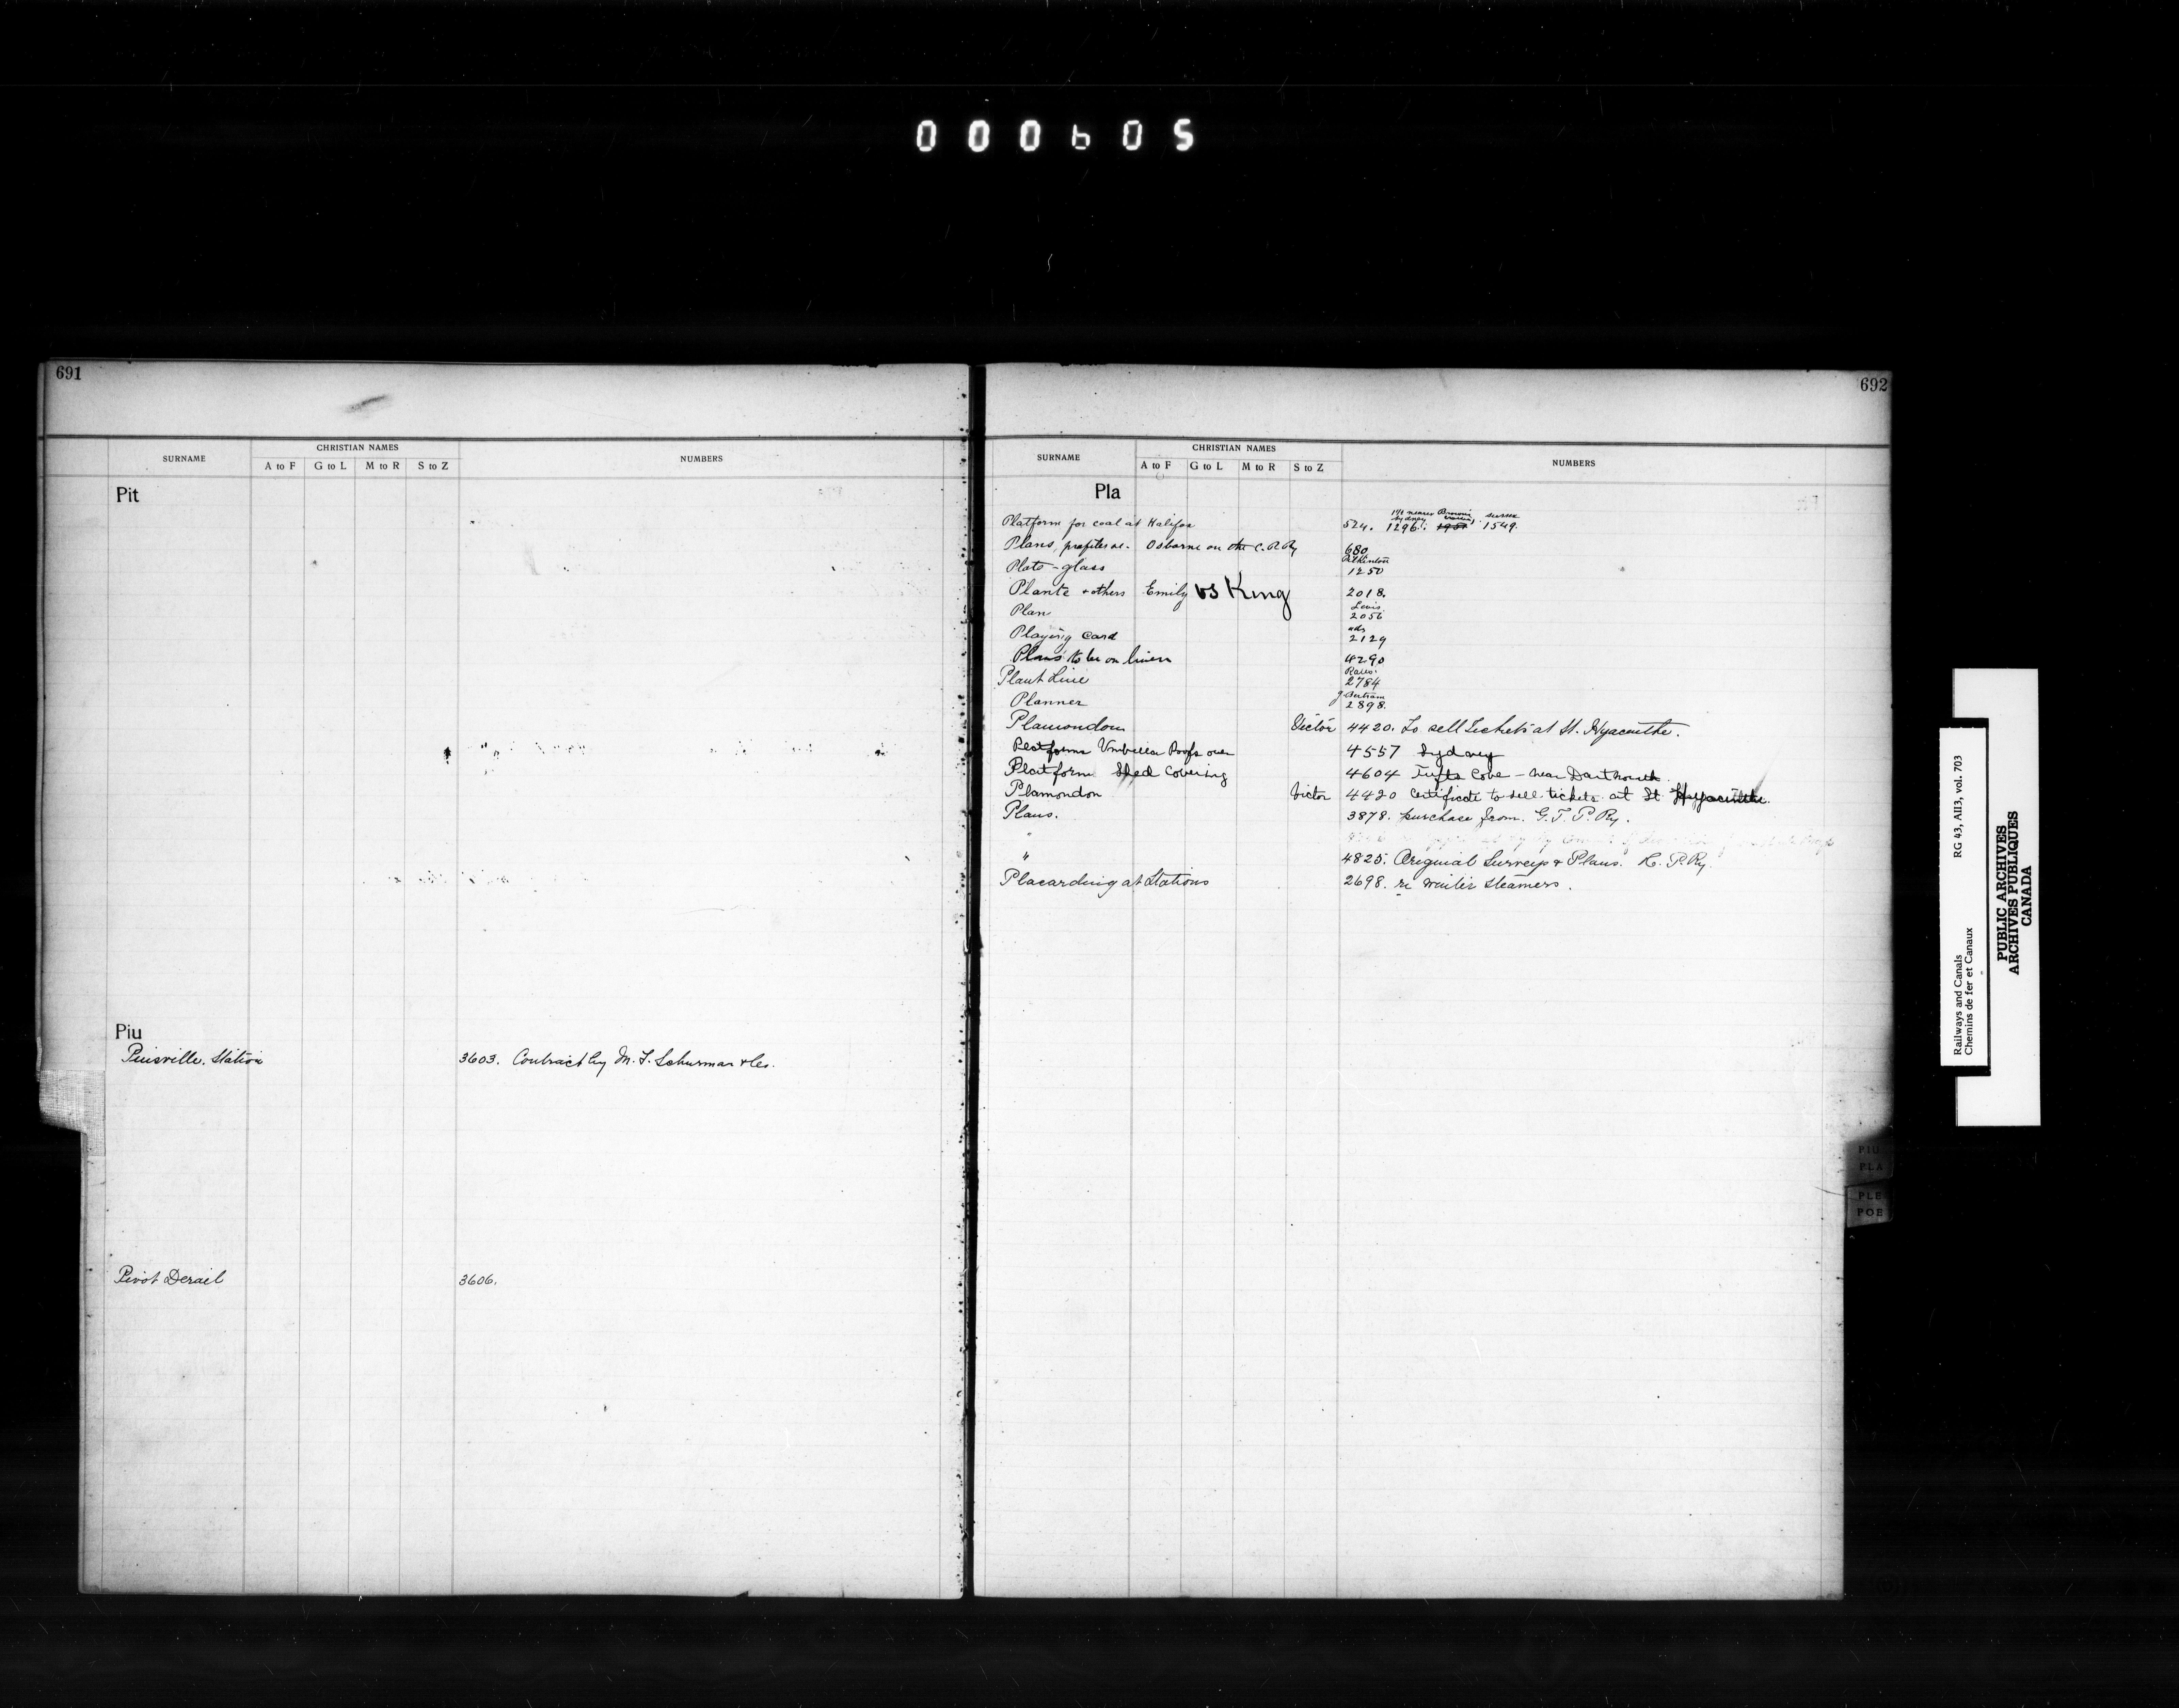 000605
691
SURNAME
CHRISTIAN NAMES
A to F G to L M to R S to Z
NUMBERS
Pit
Piu
Piusville. Station 3603. Contract by M. F. Schurman & Co.
Pivot Derail 3606.
692
SURNAME
CHRISTIAN NAMES
A to F G to L M to R S to Z
NUMBERS
Pla
Platform for coal at Halifax 524. Sydney 1296. 1951 Sussex 1549.
Plans, profiles &c. Osborne on the C. P. Ry 680
Plate-glass Pilkinton 1250
Plante & others Emily vs King 2018.
Plan Levis 2056
Playing Card ads 2129
Plans to be on linen 4290
Plant Line Rates 2784
Planner J Bertram 2898.
Plamondon Victor 4420. To sell Tickets at St. Hyacinthe.
Platforms Umbrella Roofs over 4557 Sydney
Platform Shed Covering 4604 Tufts Cove - near Dartmouth.
Plamondon Victor 4420 Certificate to sell tickets at St Hyacinthe.
Plans. 3878. purchase from G. T. P. Ry.
"
" 4825. Original Surveys & Plans. C. P. Ry
Placarding at Stations 2698. re winter steamers.
PIU
PLA
PLE
POE
Railways and Canals RG 43, AII3, vol. 703
Chemins de fer et Canaux
PUBLIC ARCHIVES
ARCHIVES PUBLIQUES
CANADA